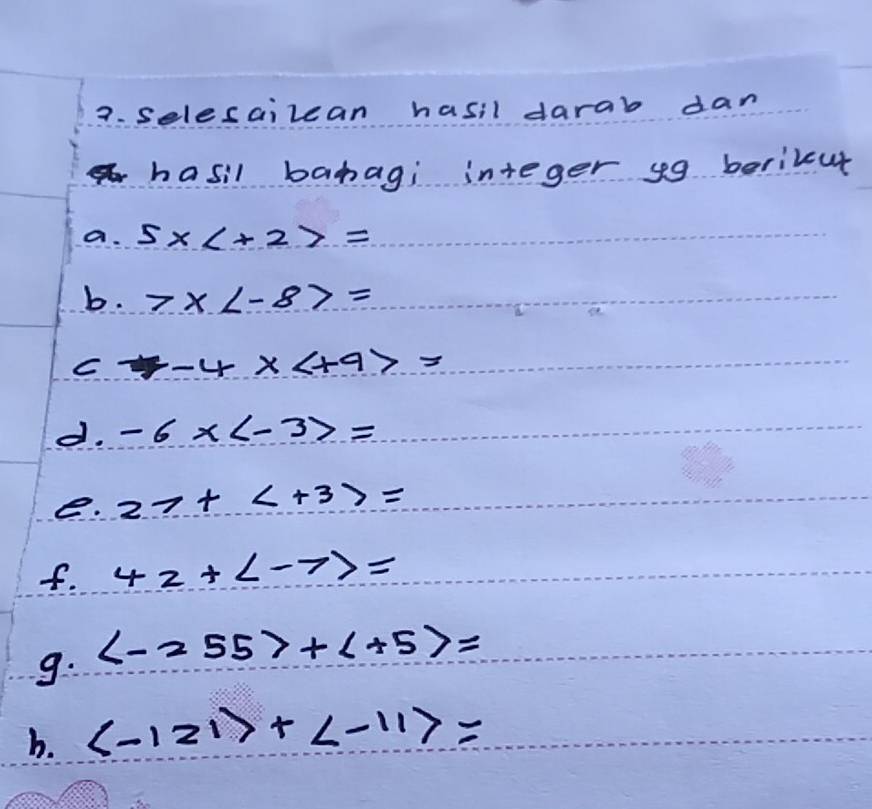 2. selesaikan hasil darab dan
hasil bahagi integer yg berikut
a. 5 x <+2> =
b. 7 x <-8> =
c -4 x <+9> =
d. -6 x <-3> =
e. 27 + <+3> =
f. 42 + <-7> =
g. <-255> + <+5> =
h. <-121> + <-11> =